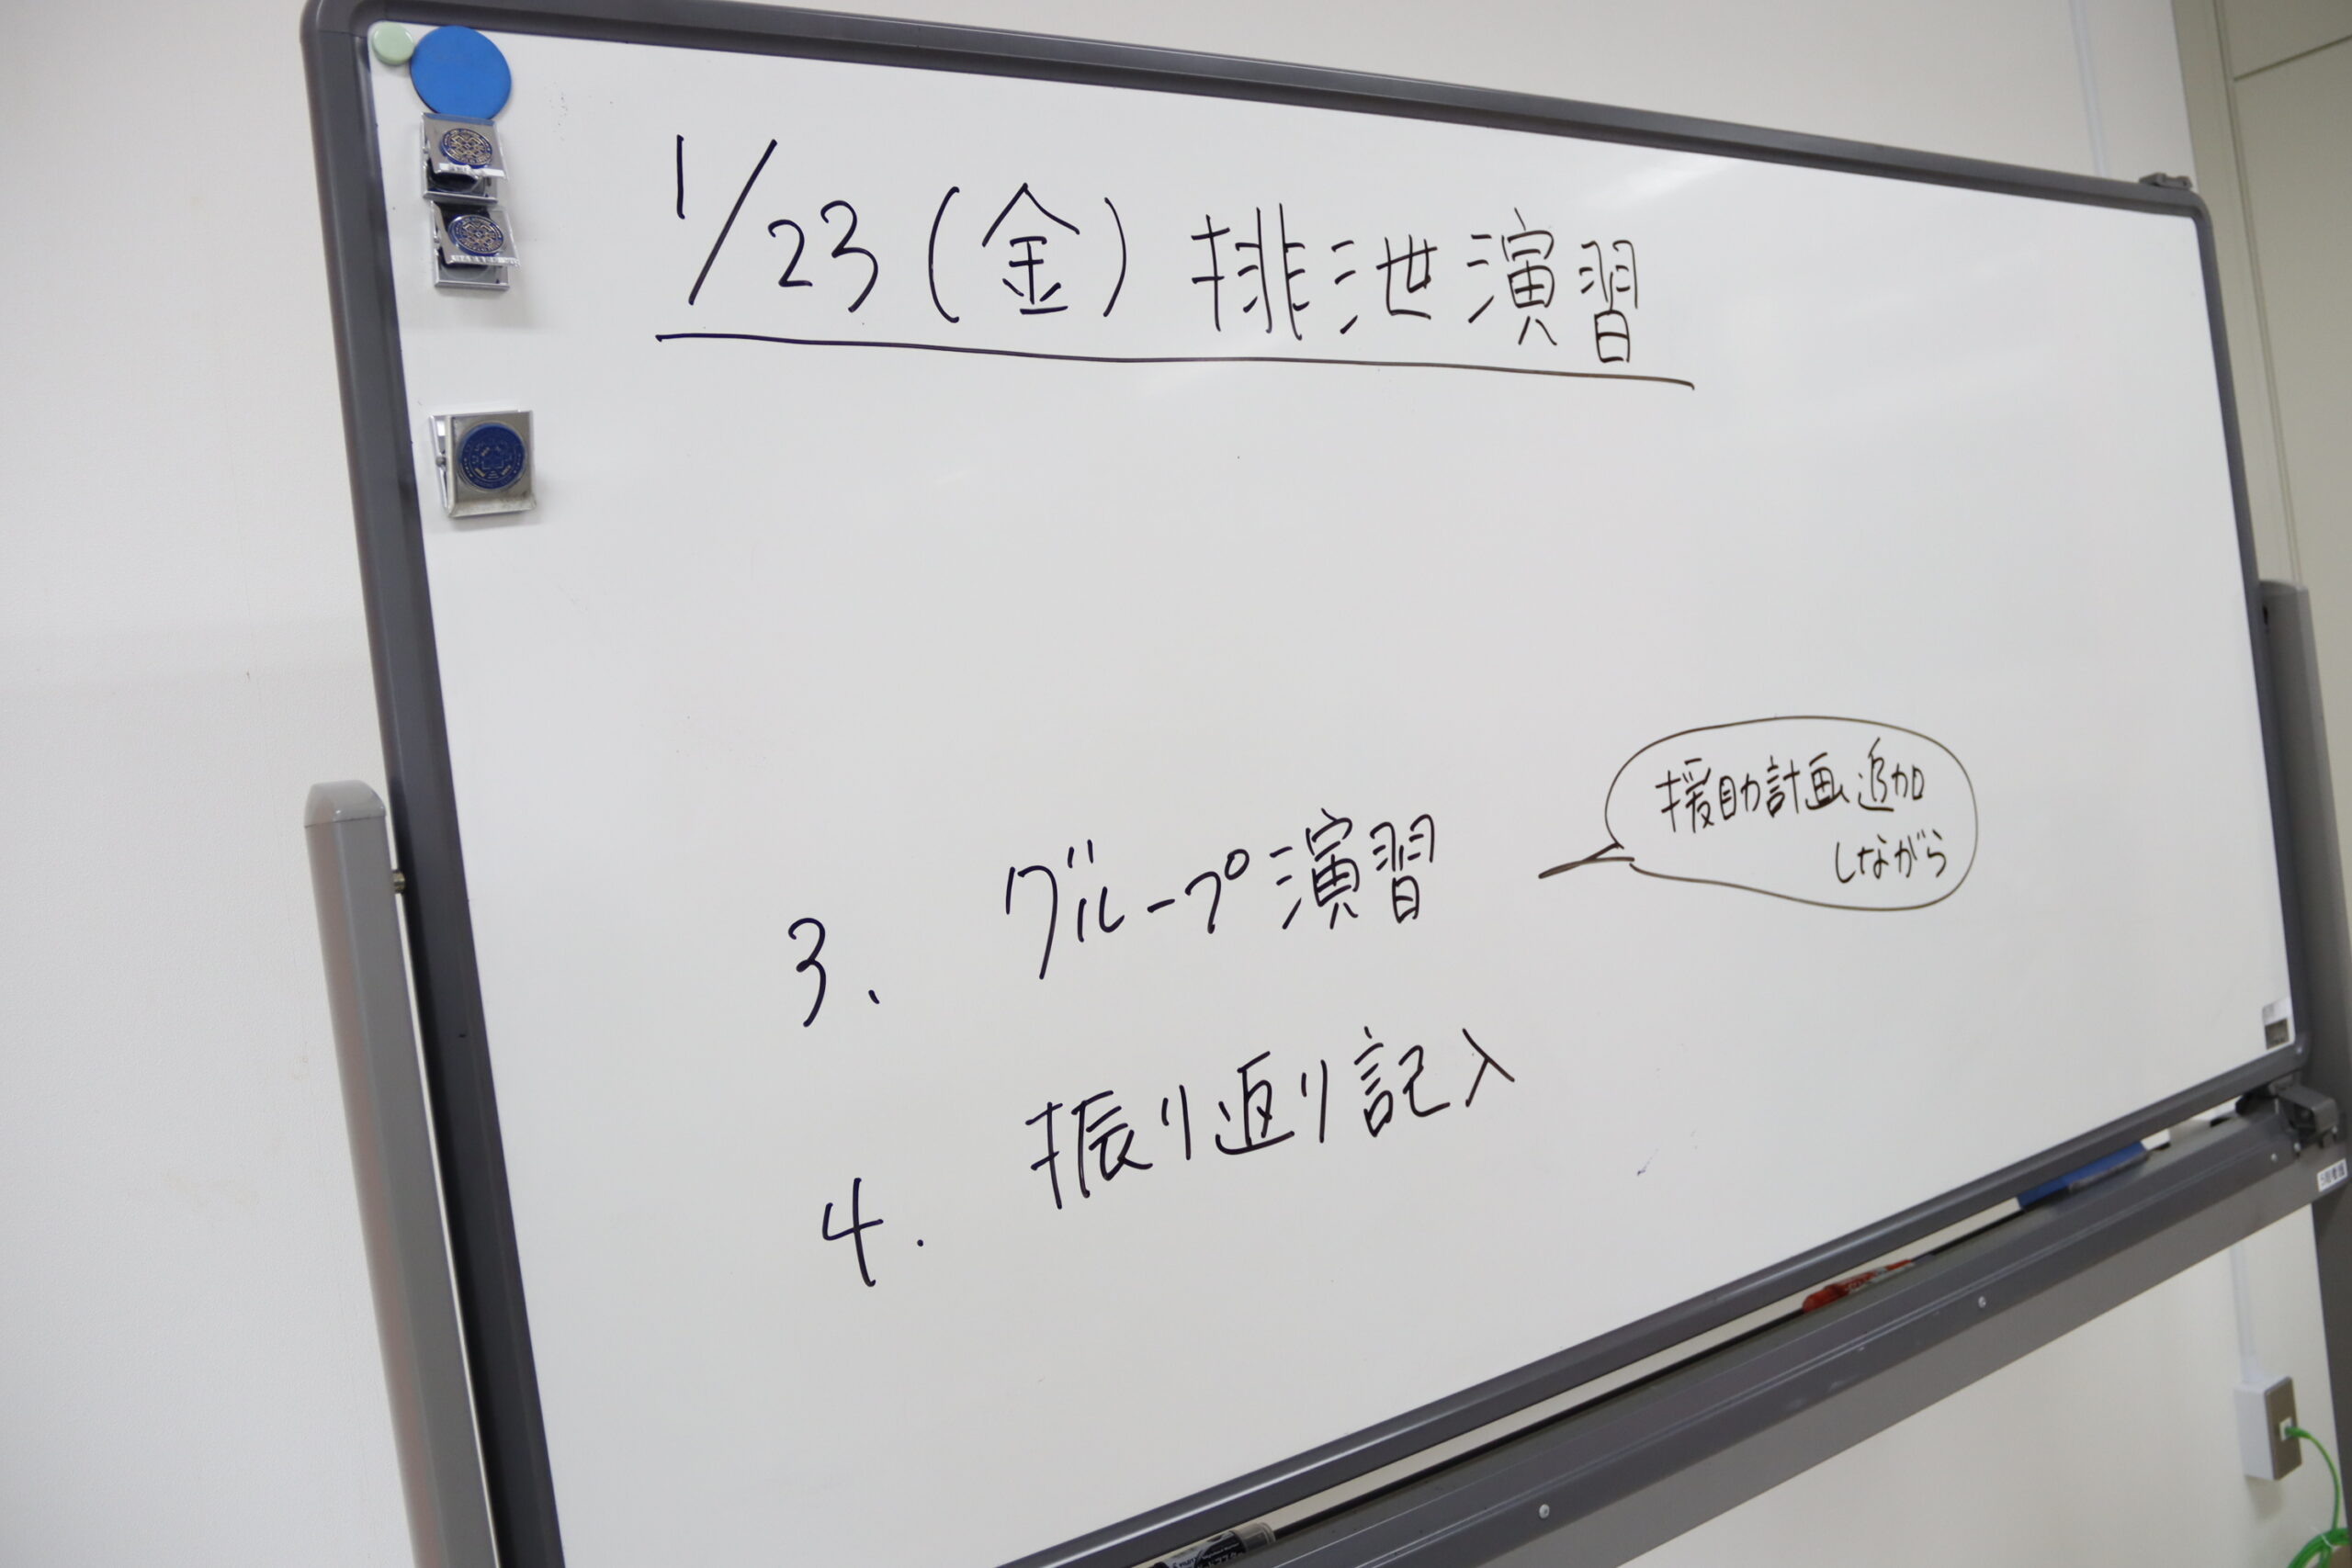 1/23(金) 排泄演習
3、 グループ演習
援助計画追加
しながら
4. 振り返り記入